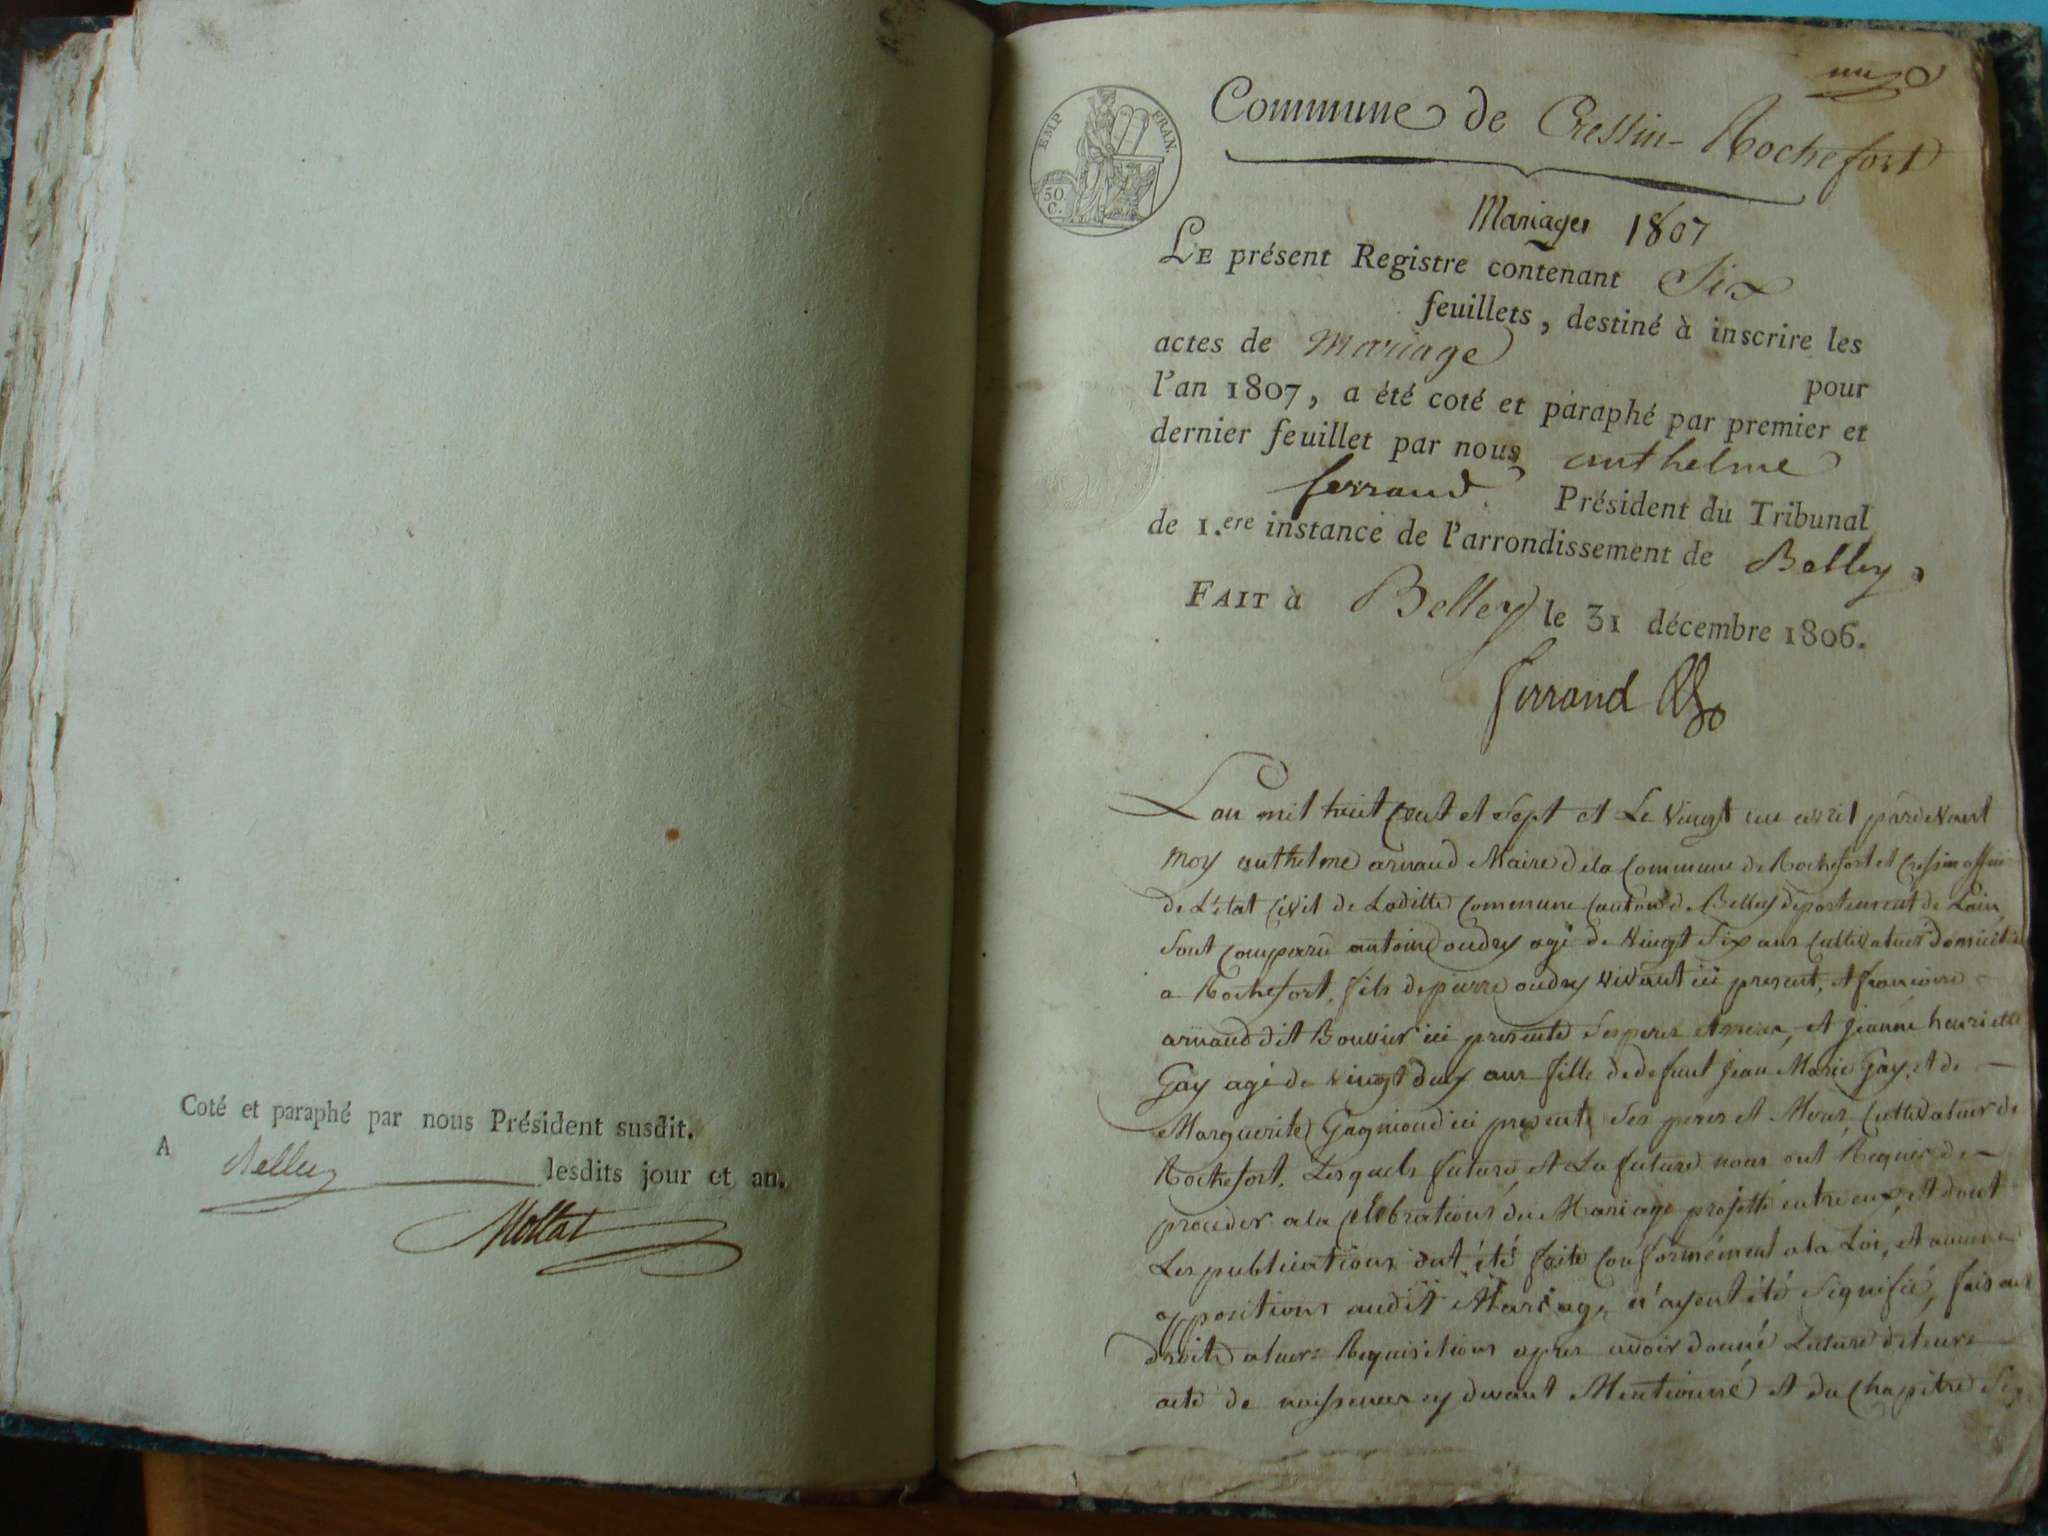 Coté et paraphé par nous Président susdit.
A Belley lesdits jour et an.
Mollat
EMP FRAN.
50 C.
Commune de Cressin-Rochefort
Mariages 1807
LE présent Registre contenant Six
feuillets, destiné à inscrire les
actes de Mariage pour
l'an 1807, a été coté et paraphé par premier et
dernier feuillet par nous, anthelme
ferrand Président du Tribunal
de 1.ere instance de l'arrondissement de Belley,
FAIT à Belley le 31 décembre 1806.
ferrand
Lan mil huit Cent et Sept et Le Vingt un avril pardevant
Moy anthelme arnaud Maire de la Commune de Rochefort et Cressin offici
de L'état Civil de Laditte Commune Canton de Belley departement de Lain
Sont Comparu antoine oudry agé de Vingt Six ans Cultivateur domicilié
a Rochefort, fils de pierre oudry vivant ici present, et francoise
arnaud dit Bouvier ici presente Ses peres et meres, et jeanne henriette
Gay agé de vingt deux ans fille de defunt jean Marie Gay, et de
Marguerite Gagnioud ici presente Ses peres et Meres Cultivateur de
Rochefort. Lesquels future et La future nous ont Requis de
proceder a la Celebrations du Mariage projetté entre eux, et dont
Les publications ont été faite Conformément a la Loi, et aucune
oppositions audit Mariage n'ayent été Signifié, faisant
droite a leurs Requisitions apres avoir donné Lecture de leurs
acte de naissences cy devant Mentionné et du Chapitre Six